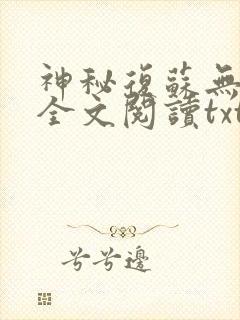 神秘復蘇無
全文閱讀txt
兮兮邊